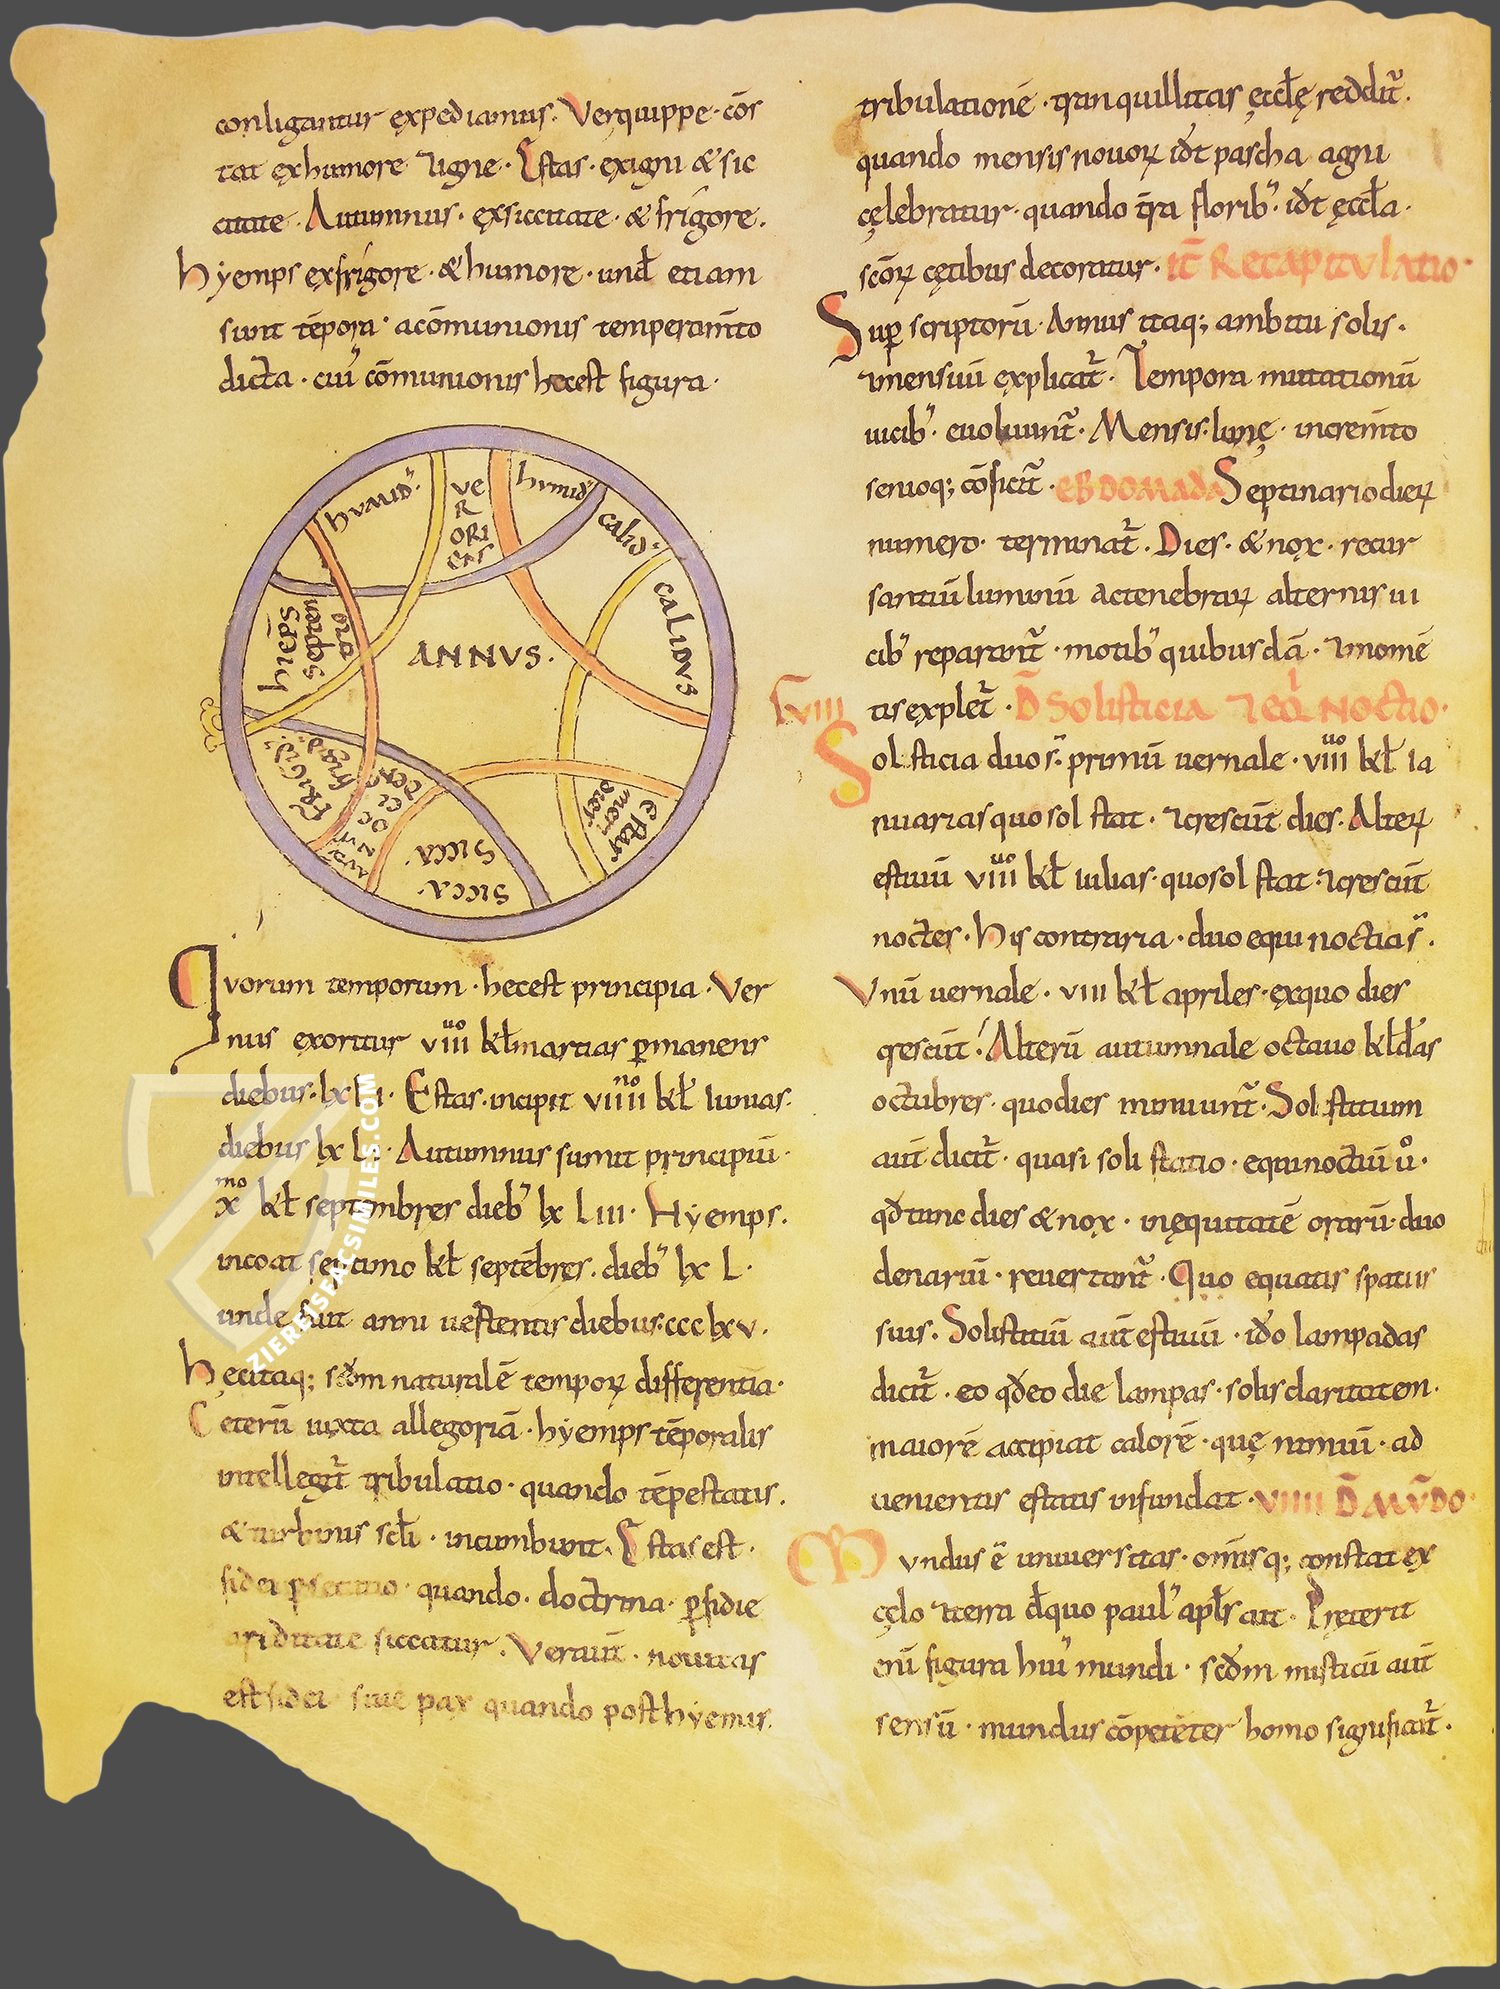 conligantur expediamus. Ver quippe · cōs
tat ex humore ⁊ igne · Estas · ex igni & sic
citate · Autumnus · ex siccitate · & frigore.
hyemps ex frigore · & humore · und̄ etiam
sunt tēpora · a cōmunionis temperam̄to
dicta · cui᾽ cōmunionis hec est figura ·
humid᾽·
VE
R
ORI
ENS
humid᾽
calid᾽·
CALIDVS
ANNVS ·
hiēps
septen
trio
FRIGID᾽·
frigid᾽·
AVT
VNN
OC
CI
DEN
SICCA·
SICCA·
estas
meri
dies
Quorum temporum · hec est principia · Ver
nus exoritur viii᷎ᵘᵒ kł martias p̄manens
diebus · lx L I · Estas · incipit viiii᷎ⁿᵒ kł iunias ·
diebus lx L · Autumnus sumit principiū ·
xᵐᵒ kł septembres dieb᾽ lx LIII · Hyemps ·
incoat septimo kł septēbres · dieb᾽ lx L ·
unde fiut anni uestentis diebus · ccc lxv ·
hęc itaq; scđm naturalē tempoꝝ differentia ·
Ceterū iuxta allegoriā · hyemps tēporalis
intellegit᷑ tribulatio · quando tēpestatis ·
& turbinis scłi · incumbunt · Estas est ·
fidei psecutio · quando · doctrina · pfidie
ariditate siccatur · Ver aut̄ · nouitas
est fidei · siue pax quando post hyemis ·
tribulationē · tranquillitas ęccłę reddit᷑ ·
quando mensis nouoꝝ idt̄ pascha agni
cęlebratur · quando t̄ra florib᾽ · idt̄ ęccła ·
scōꝝ cętibus decoratur · it̄ Recapitulatio ·
Sup scriptorū · Annus itaq; ambitu solis ·
⁊ mensiuū explicat᷑ · Tempora mutationū
uicib᾽ · euoluunt᷑ · Mensis · lunę · increm̄to
senioq; cōficit᷑ · EBDOMADA Septinario dieꝝ
numero · terminat᷑ · Dies · & nox · recur
santiū luminū ac tenebraꝝ alternis ui
cib᾽ reparant᷑ · motib᾽ quibusdā · ⁊ momē
tis explet᷑ · D̄ Solisticia ⁊ Eq̇Noctio ·
LVIII
Solsticia duo s᷑ primū uernale · viiiᵘᵒ kł ia
nuarias quo sol stat · ⁊ crescūt dies · Alteꝝ
estiuū viiiᵘᵒ kł iulias · quo sol stat · ⁊ crescūt
noctes · his contraria · duo equinoctia s᷑ ·
Vnū uernale · viii kł apriles · ex quo dies
crescūt · Alterū autumnale octauo kłdas
octubres · quo dies minuunt᷑ · Solstitum
aut̄ dicit᷑ · quasi soli statio · equinoctiū ů ·
qđ tunc dies & nox · in ęquitatē orarū · duo
denariū · reuertant᷑ · Quo equatis spatiis
suis · Solistitiū aut̄ estiuū · iđo lampadas
dicit᷑ · eo qđ eo die lampas · solis claritatem ·
maiorē accipiat calorē · quę nimiū · ad
uenientis estatis infundat · VIIII D̄ MV̄DO ·
Mundus ē uniuersitas · om̄is q; constat ex
cęlo ⁊ terra đ quo paul᾽ apłs ait · Pręterit
eni figura hui᾽ mundi · scđm misticū aut̄
sensū · mundus cōpetēter homo significat᷑ ·
ZIEREISFACSIMILES.COM